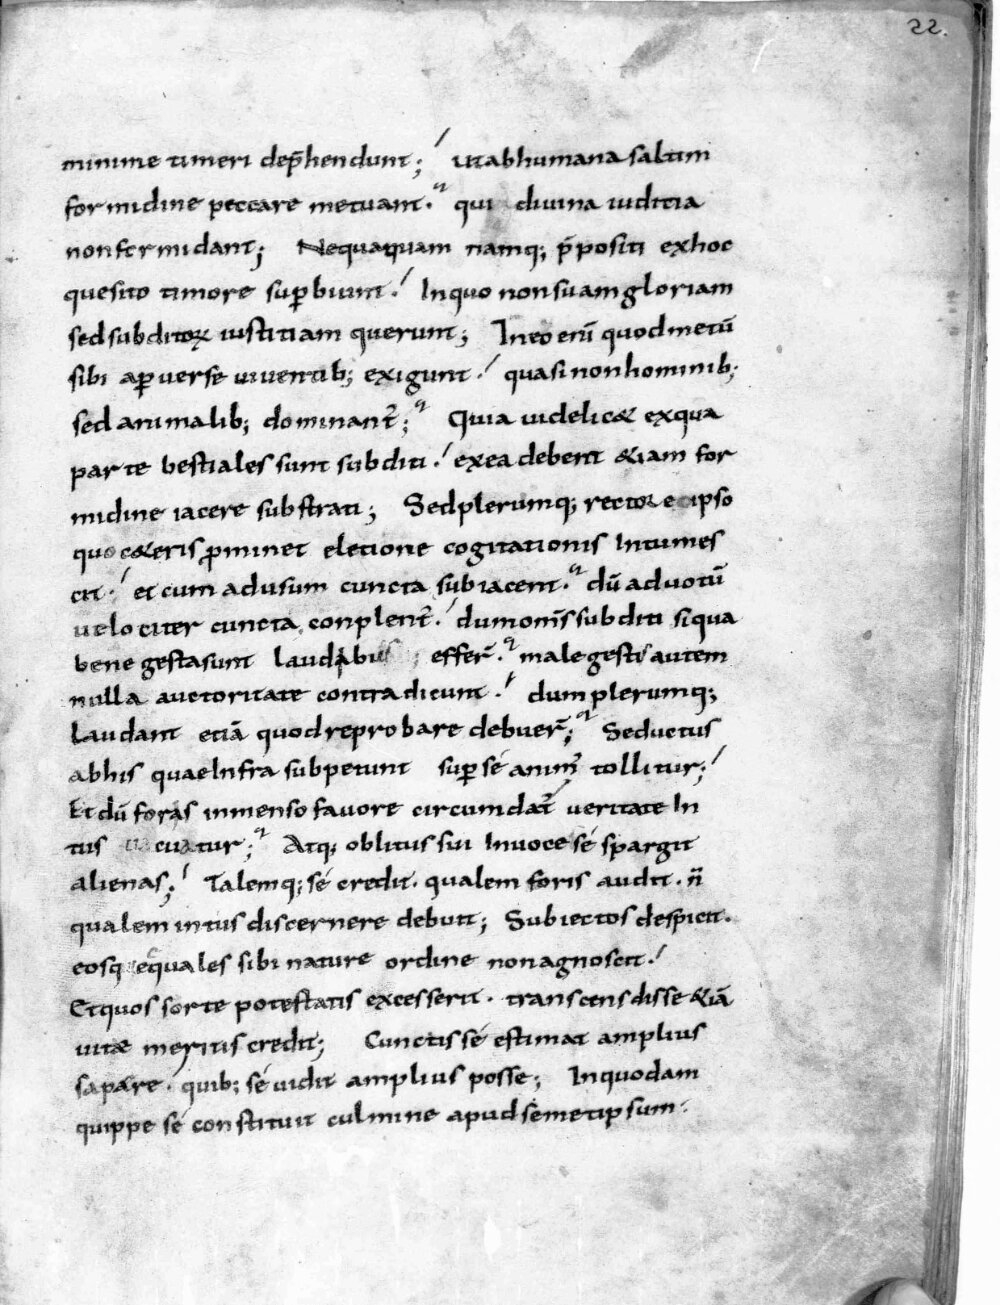 22.
minime timeri dep̄hendunt; ut ab humana saltim
formidine peccare metuant. qui divina iuditia
non formidant; Nequaquam namq; p̄positi ex hoc
quesito timore suꝑbiunt. In quo non suam gloriam
sed subditoꝝ iustitiam querunt; In eo enī quod metū
sibi aꝑverse viventib; exigunt. quasi non hominib;
sed animalib; dominant̄; Quia videlic& ex qua
parte bestiales sunt subditi. ex ea debent &iam for
midine iacere substrati; Sed plerumq; rector eo ipso
quo c&eris ꝓminet eletione cogitationis Intumes
cit. et cum ad usum cuncta subiacent. dū ad votū
velociter cuncta conplent̄. dum omn̄s subditi si qua
bene gesta sunt laudibus effer̄. male gestis autem
nulla auctoritate contradicunt. dum plerumq;
Laudant etiā quod reprobare debuer̄; Seductus
ab his quae Infra subpetunt suꝑ sé anim̄ tollitur;
Et dū foras inmenso favore circumdat̄ veritate In
tus cuatur; Atq; oblitus sui In voce sé spargit
alienas; Talemq; sé credit. qualem foris audit. n̄
qualem intus discernere debuit; Subiectos despicit.
eosq equales sibi nature ordine non agnoscit.
Et quos sorte potestatis excesserit. transcensdisse &iā
vitae meritis credit; Cunctis sé estimat amplius
sapare. quib; sé vidit amplius posse; In quodam
quippe sé constituit culmine apud semetipsum.